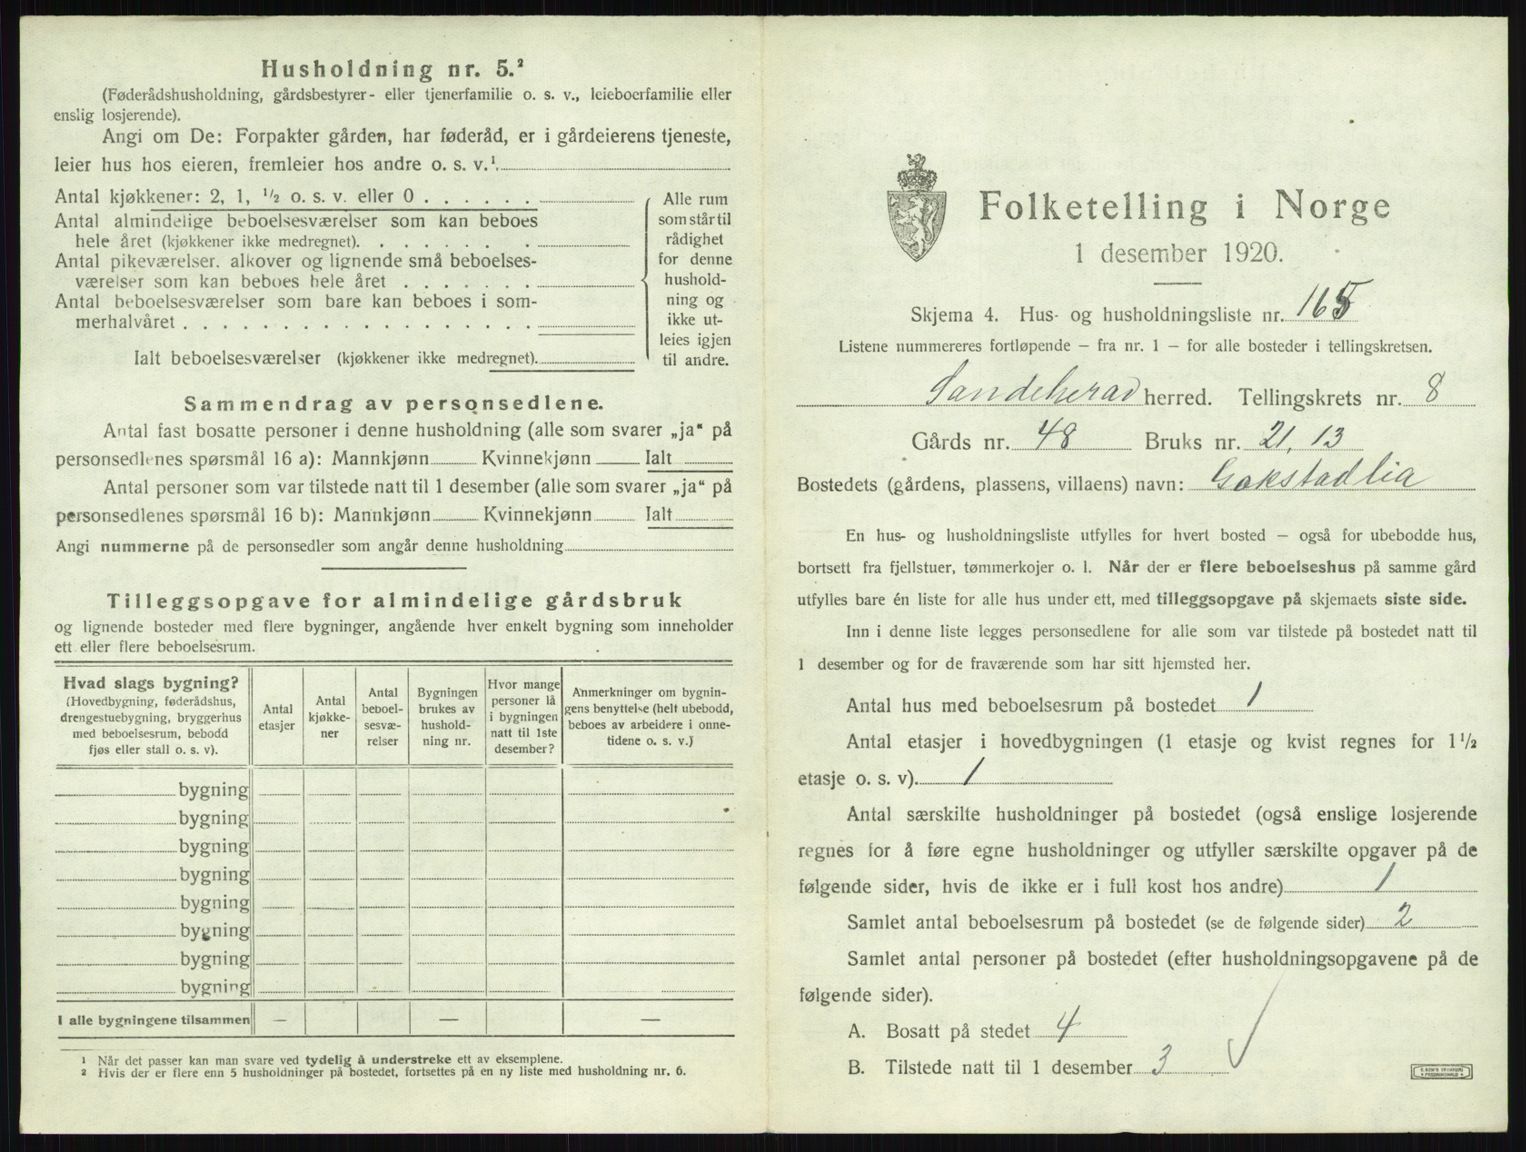 Husholdning nr. 5.²
(Føderådshusholdning, gårdsbestyrer- eller tjenerfamilie o. s. v., leieboerfamilie eller
enslig losjerende).
Angi om De: Forpakter gården, har føderåd, er i gårdeierens tjeneste,
leier hus hos eieren, fremleier hos andre o. s. v.¹
Antal kjøkkener: 2, 1, ½ o. s. v. eller 0
Antal almindelige beboelsesværelser som kan beboes
hele året (kjøkkener ikke medregnet).
Antal pikeværelser. alkover og lignende små beboelses-
værelser som kan beboes hele året
Antal beboelsesværelser som bare kan beboes i som-
merhalvåret
Ialt beboelsesværelser (kjøkkener ikke medregnet).
Alle rum
som står til
rådighet
for denne
hushold-
ning og
ikke ut-
leies igjen
til andre.
Sammendrag av personsedlene.
Antal fast bosatte personer i denne husholdning (alle som svarer „ja“ på
personsedlenes spørsmål 16 a): Mannkjønn Kvinnekjønn Ialt
Antal personer som var tilstede natt til 1 desember (alle som svarer „ja“ på
personsedlenes spørsmål 16 b): Mannkjønn Kvinnekjønn Ialt
Angi nummerne på de personsedler som angår denne husholdning
Tilleggsopgave for almindelige gårdsbruk
og lignende bosteder med flere bygninger, angående hver enkelt bygning som inneholder
ett eller flere beboelsesrum.
Hvad slags bygning?
(Hovedbygning, føderådshus,
drengestuebygning, bryggerhus
med beboelsesrum, bebodd
fjøs eller stall o. s. v).
Antal
etasjer
Antal
kjøkke-
ner
Antal
beboel-
sesvæ-
relser
Bygningen
brukes av
hushold-
ning nr.
Hvor mange
personer lå
i bygningen
natt til 1ste
desember?
Anmerkninger om bygnin-
gens benyttelse (helt ubebodd,
beboes av arbeidere i onne-
tidene o. s. v.)
bygning
bygning
bygning
bygning
bygning
bygning
bygning
bygning
I alle bygningene tilsammen — — —
¹ Når det passer kan man svare ved tydelig å understreke ett av eksemplene.
² Hvis der er flere enn 5 husholdninger på bostedet, fortsettes på en ny liste med husholdning nr. 6.
Folketelling i Norge
1 desember 1920.
Skjema 4. Hus- og husholdningsliste nr. 165
Listene nummereres fortløpende — fra nr. 1 — for alle bosteder i tellingskretsen.
Sandeherad herred. Tellingskrets nr. 8
Gårds nr. 48 Bruks nr. 21, 13
Bostedets (gårdens, plassens, villaens) navn: Gokstadlia
En hus- og husholdningsliste utfylles for hvert bosted — også for ubebodde hus,
bortsett fra fjellstuer, tømmerkojer o. l. Når der er flere beboelseshus på samme gård
utfylles bare én liste for alle hus under ett, med tilleggsopgave på skjemaets siste side.
Inn i denne liste legges personsedlene for alle som var tilstede på bostedet natt til
1 desember og for de fraværende som har sitt hjemsted her.
Antal hus med beboelsesrum på bostedet 1
Antal etasjer i hovedbygningen (1 etasje og kvist regnes for 1½
etasje o. s. v). 1
Antal særskilte husholdninger på bostedet (også enslige losjerende
regnes for å føre egne husholdninger og utfyller særskilte opgaver på de
følgende sider, hvis de ikke er i full kost hos andre) 1
Samlet antal beboelsesrum på bostedet (se de følgende sider) 2
Samlet antal personer på bostedet (efter husholdningsopgavene på de
følgende sider).
A. Bosatt på stedet 4
B. Tilstede natt til 1 desember 3